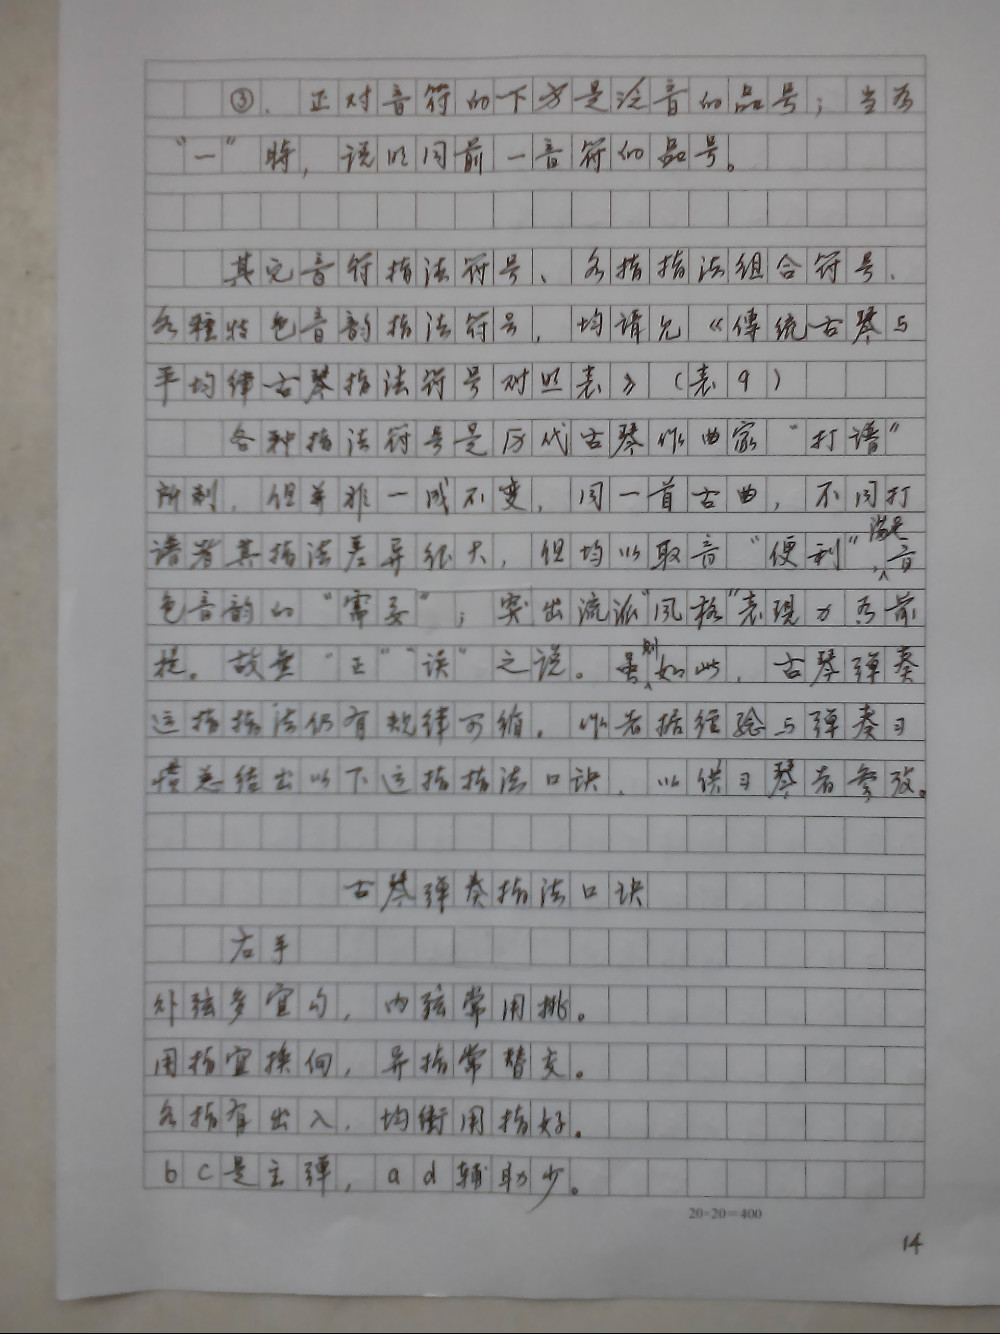 ③. 正对音符的下方是泛音的品号；当为
“一”时，说明同前一音符的品号。
其它音符指法符号、各指指法组合符号、
各種特色音韵指法符号，均请见《傳统古琴与
平均律古琴指法符号对照表》（表9）
各种指法符号是历代古琴作曲家“打谱”
所制，但并非一成不变，同一首古曲，不同打
谱者其指法差异很大，但均以取音“便利”，满足音
色音韵的“需要”；突出流派“风格”表现力为前
提。故無“正”“误”之说。虽则如此，古琴弹奏
运指指法仍有规律可循。作者据经验与弹奏习
惯总结出以下运指指法口诀，以供习琴者参考。
古琴弹奏指法口诀
右手
外弦多宜勾，内弦常用挑。
用指宜换向，异指常替变。
各指有出入，均衡用指好。
b c是主弹，a d辅助少。
20×20=400
14